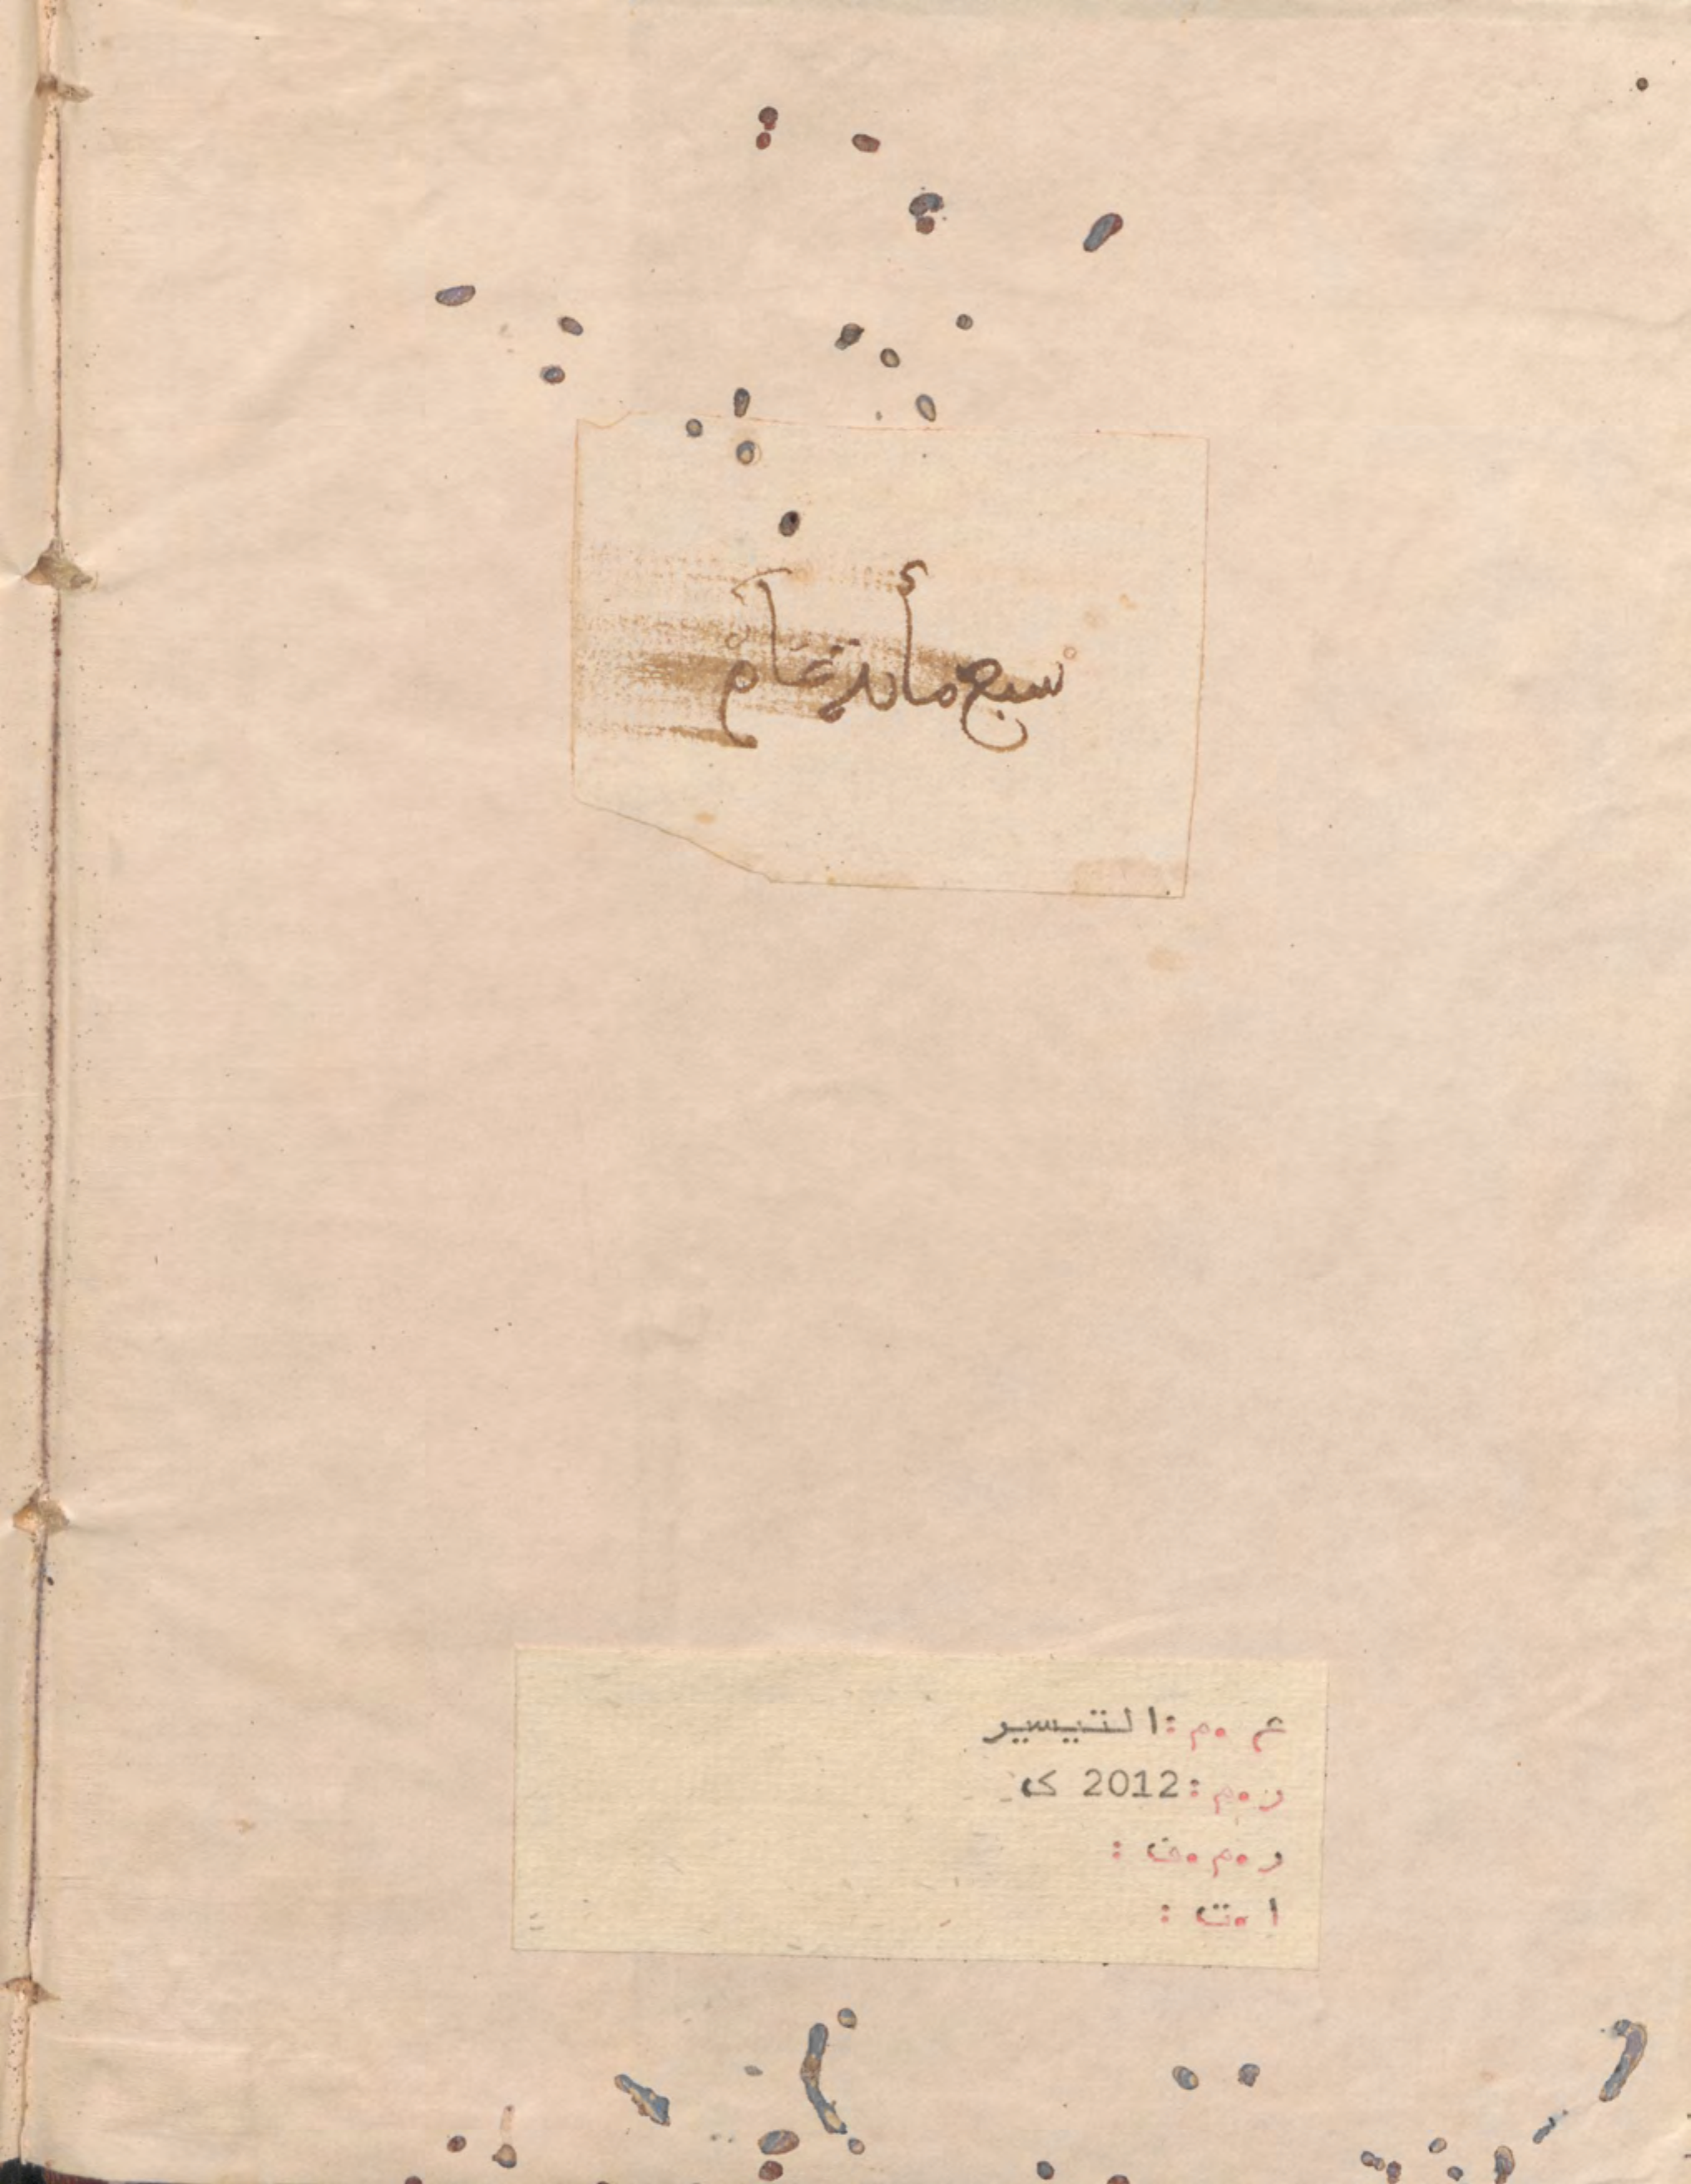 سبع مأىة عام
ع.م: التيسير
ر.م: 2012 ك
ر.م.ف:
ا.ت: